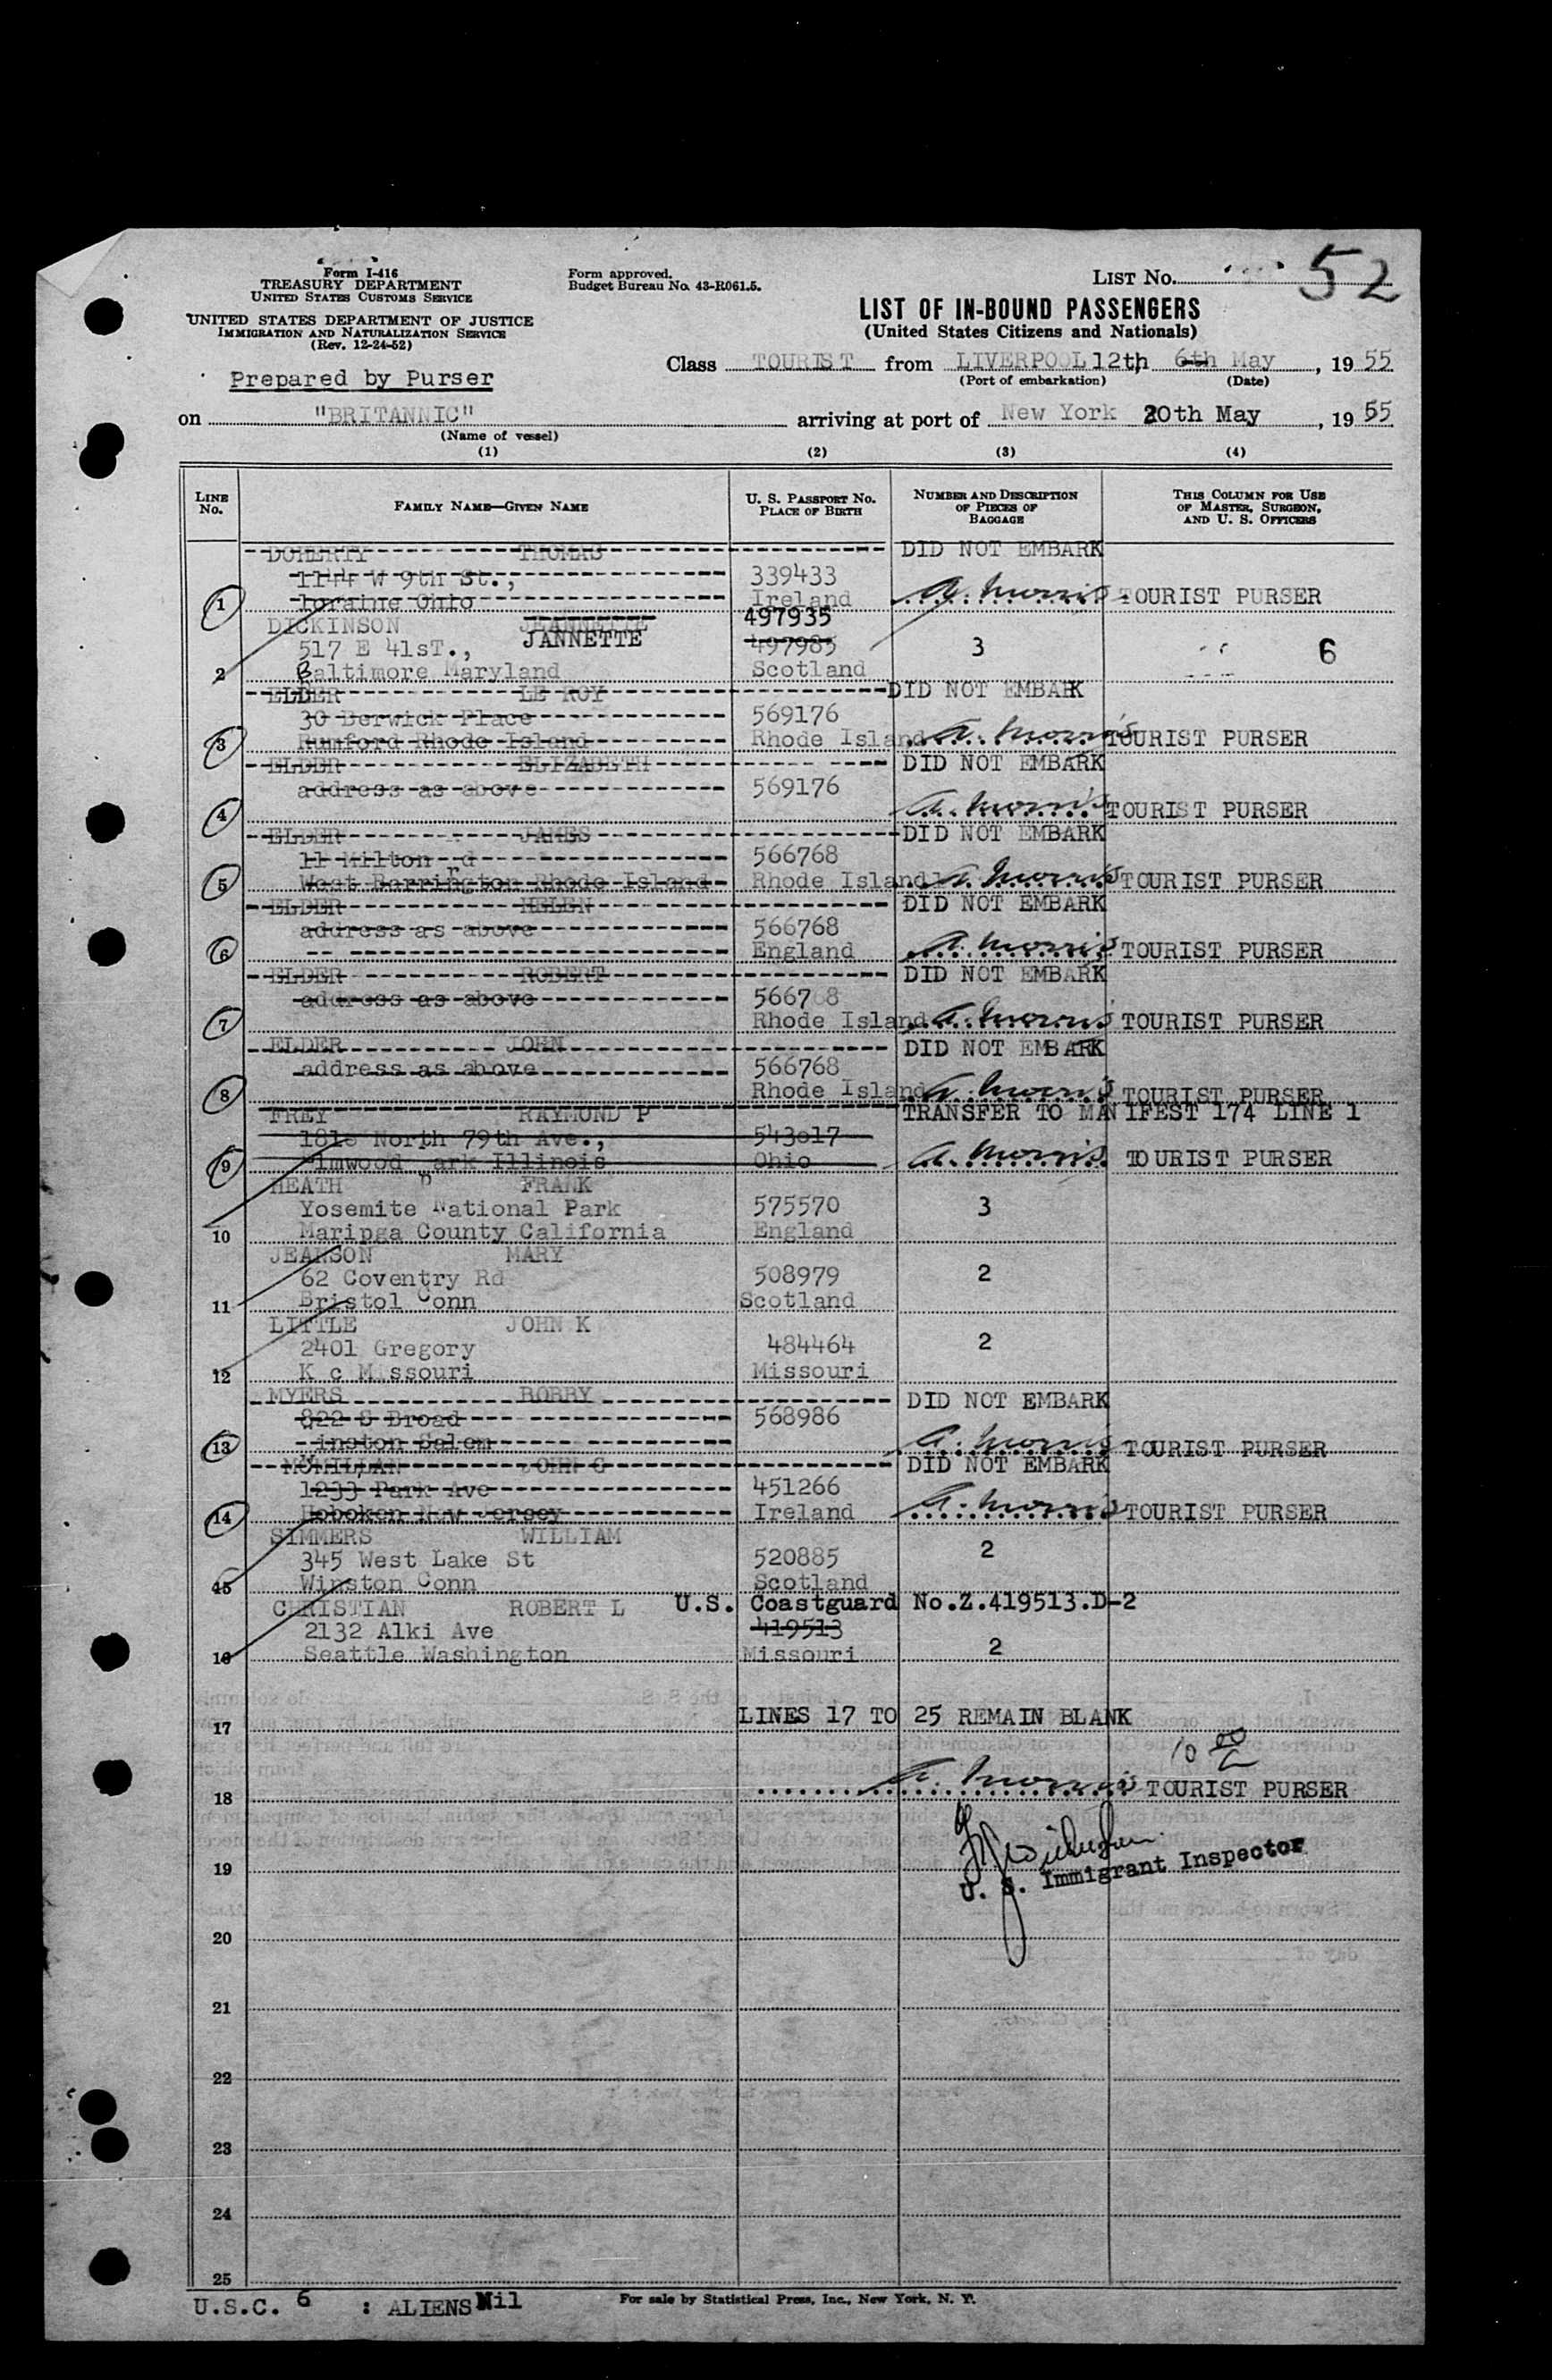 52
Form I-416
TREASURY DEPARTMENT
UNITED STATES CUSTOMS SERVICE
UNITED STATES DEPARTMENT OF JUSTICE
IMMIGRATION AND NATURALIZATION SERVICE
(Rev. 12-24-52)
Prepared by Purser
Form approved.
Budget Bureau No. 43-R061.5.
LIST NO.
LIST OF IN-BOUND PASSENGERS
(United States Citizens and Nationals)
Class TOURIST from LIVERPOOL 12th 6th May, 1955
(Port of embarkation) (Date)
on "BRITANNIC" arriving at port of New York 20th May, 1955
(Name of vessel)
(1) (2) (3) (4)
LINE NO. FAMILY NAME—GIVEN NAME U. S. PASSPORT NO. PLACE OF BIRTH NUMBER AND DESCRIPTION OF PIECES OF BAGGAGE THIS COLUMN FOR USE OF MASTER, SURGEON, AND U. S. OFFICERS
DOHERTY THOMAS DID NOT EMBARK
1144 W 9th St., 339433
1 Loraine Ohio Ireland A. Morris TOURIST PURSER
DICKINSON JEANNETTE 497935
517 E 41sT., JANNETTE 497985 3 6
2 Baltimore Maryland Scotland
ELDER LE ROY DID NOT EMBARK
30 Berwick Place 569176
3 Rumford Rhode Island Rhode Island A. Morris TOURIST PURSER
ELDER ELIZABETH DID NOT EMBARK
address as above 569176
4 A. Morris TOURIST PURSER
ELDER JAMES DID NOT EMBARK
11 Milton rd 566768
5 West Barrington Rhode Island Rhode Island A. Morris TOURIST PURSER
ELDER HELEN DID NOT EMBARK
address as above 566768
6 England A. Morris TOURIST PURSER
ELDER ROBERT DID NOT EMBARK
address as above 566768
7 Rhode Island A. Morris TOURIST PURSER
ELDER JOHN DID NOT EMBARK
address as above 566768
8 Rhode Island A. Morris TOURIST PURSER
FREY RAYMOND P TRANSFER TO MANIFEST 174 LINE 1
1818 North 79th Ave., 543017
9 Elmwood Park Illinois Ohio A. Morris TOURIST PURSER
HEATH FRANK
Yosemite National Park 575570 3
10 Maripga County California England
JEARSON MARY
62 Coventry Rd 508979 2
11 Bristol Conn Scotland
LITTLE JOHN K
2401 Gregory 484464 2
12 K c Missouri Missouri
MYERS BOBBY DID NOT EMBARK
822 S Broad 568986
13 Winston Salem A. Morris TOURIST PURSER
McMILLAN JOHN G DID NOT EMBARK
1233 Park Ave 451266
14 Hoboken New Jersey Ireland A. Morris TOURIST PURSER
SIMMERS WILLIAM
345 West Lake St 520885 2
15 Winston Conn Scotland
CHRISTIAN ROBERT L U.S. Coastguard No.Z.419513.D-2
2132 Alki Ave 419513
16 Seattle Washington Missouri 2
17 LINES 17 TO 25 REMAIN BLANK
18 A. Morris TOURIST PURSER
19 U. S. Immigrant Inspector
20
21
22
23
24
25
U.S.C. 6 : ALIENS Nil For sale by Statistical Press, Inc., New York, N. Y.